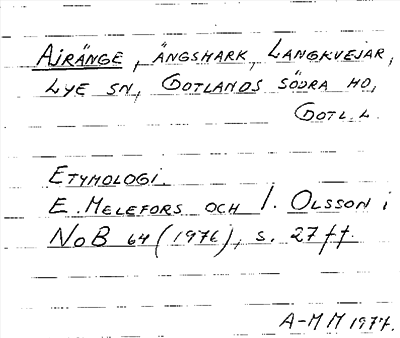 AJRÄNGE, ÄNGSMARK, LANGKVEJAR,
LYE SN, GOTLANDS SÖDRA HD,
GOTL. L.
ETYMOLOGI.
E. MELEFORS OCH I. OLSSON i
NoB 64 (1976), s. 27 ff.
A-M M 1977.